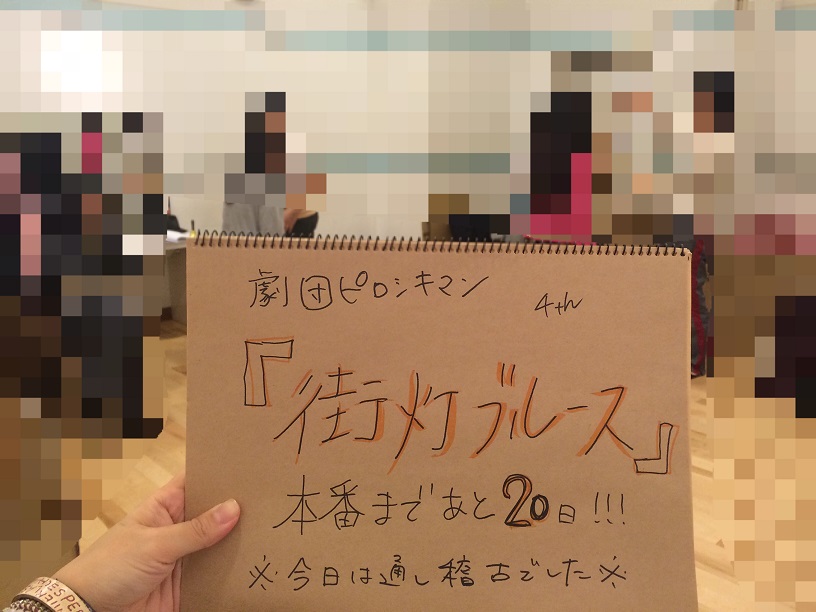 劇団ピロシキマン 4th
『街灯ブルース』
本番まであと20日!!!
※今日は通し稽古でした※